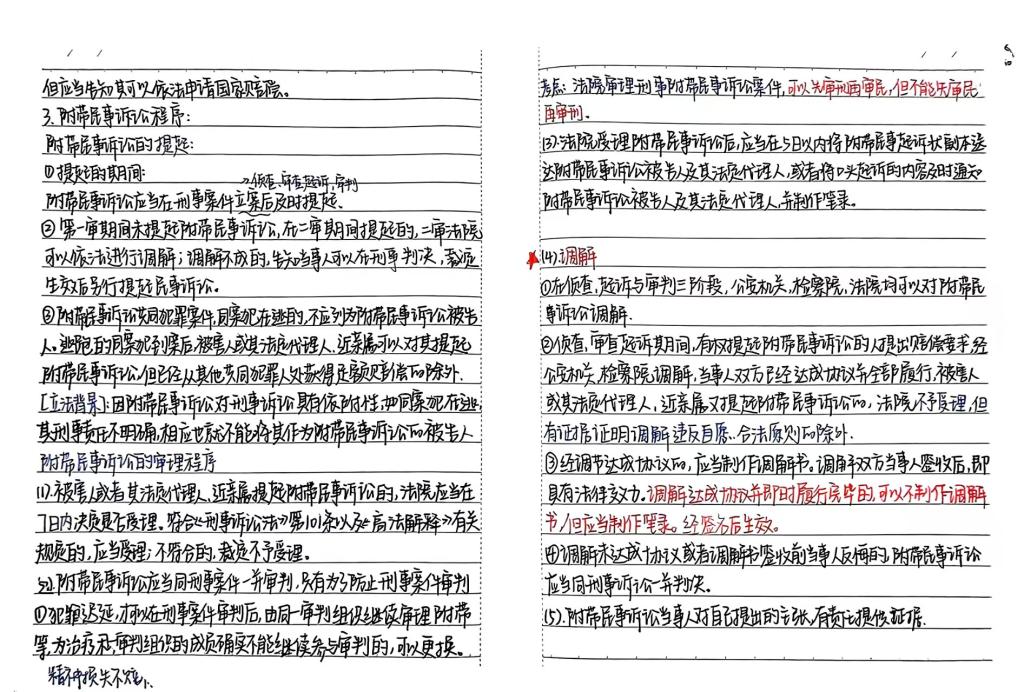 但应当告知其可以依法申请国家赔偿。
3.附带民事诉讼程序:
附带民事诉讼的提起:
①提起的期间:
→侦查、审查起诉,审判
附带民事诉讼应当在刑事案件立案后及时提起、
②第一审期间未提起附带民事诉讼,在二审期间提起的,二审法院
可以依法进行调解;调解不成的,告知当事人可以在刑事判决,裁定
生效后另行提起民事诉讼。
③附带民事诉讼共同犯罪案件,同案犯在逃的,不应列为附带民事诉讼被告
人。逃跑的同案犯到案后,被害人或其法定代理人、近亲属可以对其提起
附带民事诉讼,但已经从其他共同犯罪人处获得足额赔偿的除外.
[立法背景]:因附带民事诉讼对刑事诉讼具有依附性,如同案犯在逃,
其刑事责任不明确,相应也就不能将其作为附带民事诉讼的被告人
附带民事诉讼的审理程序
(1).被害人或者其法定代理人、近亲属提起附带民事诉讼的,法院应当在
7日内决定是否受理。符合《刑事诉讼法》第101条以及《高法解释》有关
规定的,应当受理;不符合的,裁定不予受理。
(2).附带民事诉讼应当同刑事案件一并审判,只有为了防止刑事案件审判
①犯罪迟延,才可以在刑事案件审判后,由同一审判组织继续审理附带
等,为治疗 审判组织的成员确实不能继续参与审判的,可以更换。
精神损失不赔
考点:法院审理刑事附带民事诉讼案件,可以先审刑再审民,但不能先审民
再审刑。
(3).法院受理附带民事诉讼后,应当在5日以内将附带民事起诉状副本送
达附带民事诉讼被告人及其法定代理人,或者将口头起诉的内容及时通知
附带民事诉讼被告人及其法定代理人,并制作笔录。
(4).调解
①在侦查,起诉与审判三阶段,公安机关,检察院,法院均可以对附带民
事诉讼调解.
②侦查,审查起诉期间,有权提起附带民事诉讼的人提出赔偿要求,经
公安机关,检察院调解,当事人双方已经达成协议并全部履行,被害人
或其法定代理人、近亲属又提起附带民事诉讼的,法院不予受理,但
有证据证明调解违反自愿、合法原则的除外.
③经调节达成协议的,应当制作调解书。调解双方当事人签收后,即
具有法律效力。调解达成协议并即时履行完毕的,可以不制作调解
书,但应当制作笔录。经签名后生效。
④调解未达成协议或者调解书签收前当事人反悔的,附带民事诉讼
应当同刑事诉讼一并判决。
(5).附带民事诉讼当事人对自己提出的主张,有责任提供证据.